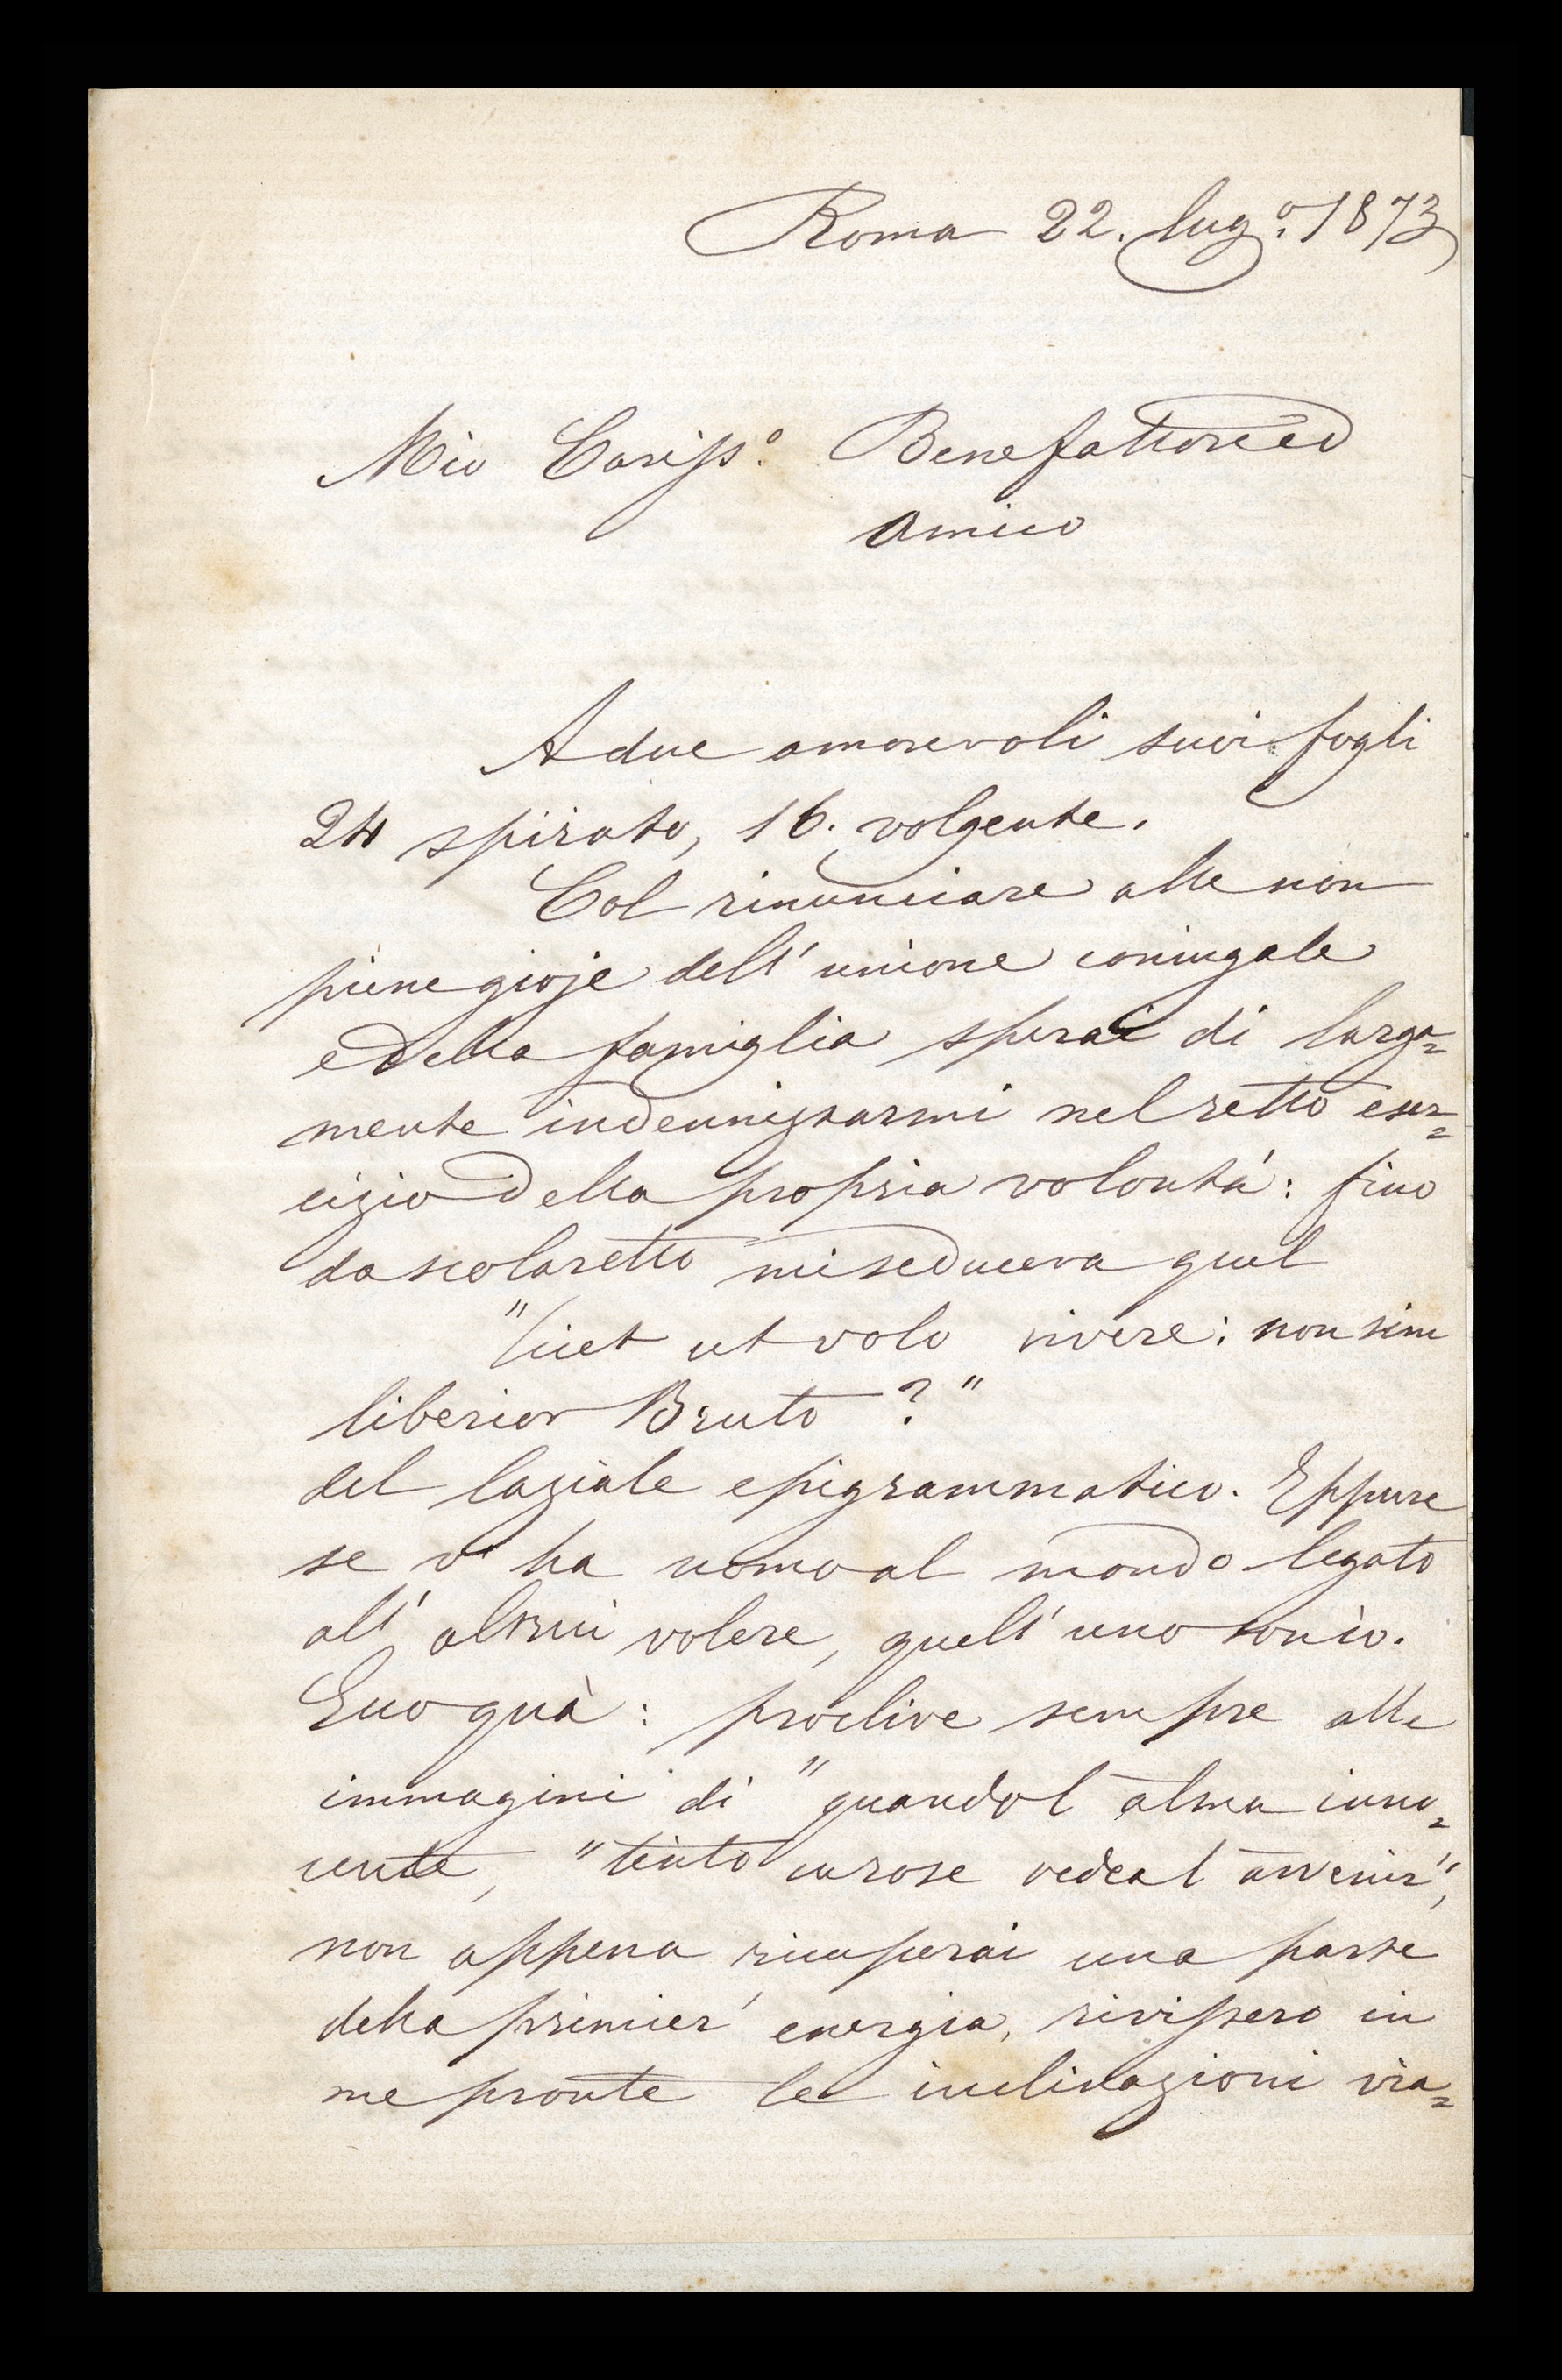 Roma 22. lug.o 1873
Mio Cariss.o Benefattore ed
Amico
A due amorevoli suoi fogli
24 spirato, 16. volgente.
Col rinunciare alle non
piene gioje dell' unione coniugale
e della famiglia sperai di larga=
mente indennizzarmi nel retto eser=
cizio della propria volontá: fino
da scolaretto mi seduceva quel
"licet ut volo vivere: non sim
liberior Bruto ?"
del laziale epigrammatico. Eppure
se v' ha uomo al mondo legato
all' altrui volere, quell' uno son io.
Ecco quà: proclive sempre alle
immagini di "quando l' alma inno=
cente, "tinto in rose vedea l' avvenir",
non appena ricuperai una parte
della primier' energia, rivissero in
me pronte le inclinazioni via=